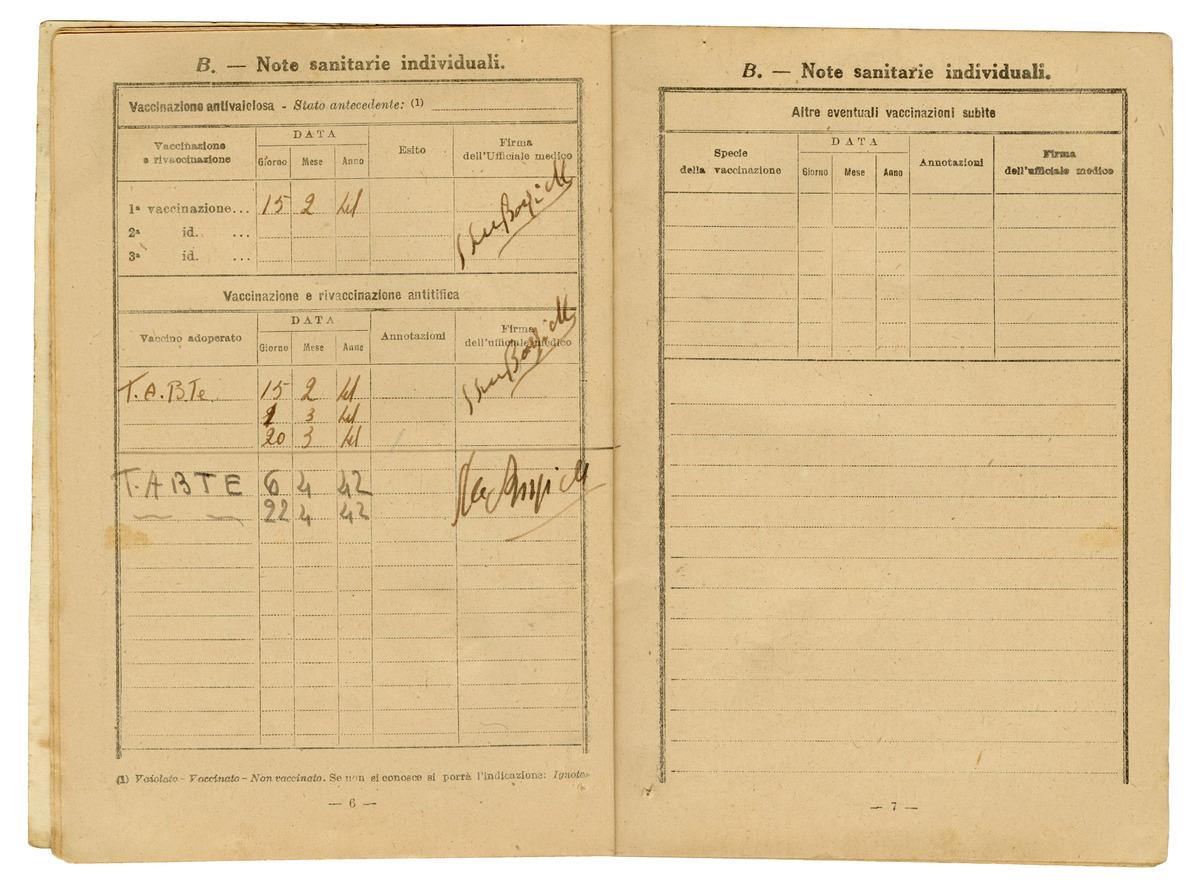 B. — Note sanitarie individuali.
Vaccinazione antivaiolosa - Stato antecedente: (1)
Vaccinazione e rivaccinazione
DATA
Giorno Mese Anno
Esito
Firma dell'Ufficiale medico
1ª vaccinazione... 15 2 41
2ª id. ...
3ª id. ...
Vaccinazione e rivaccinazione antitifica
Vaccino adoperato
DATA
Giorno Mese Anno
Annotazioni
Firma dell'ufficiale medico
T.A.B.Te. 15 2 41
1 3 41
20 3 41
T.ABTE 6 4 42
22 4 42
(1) Vaiolato - Vaccinato - Non vaccinato. Se non si conosce si porrà l'indicazione: Ignoto.
— 6 —
B. — Note sanitarie individuali.
Altre eventuali vaccinazioni subite
Specie della vaccinazione
DATA
Giorno Mese Anno
Annotazioni
Firma dell'ufficiale medico
— 7 —